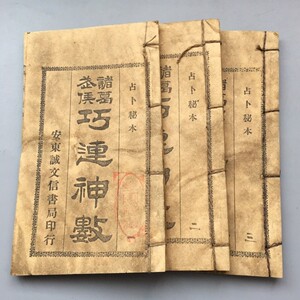 占卜秘本
諸葛
武侯
巧連神數
安東誠文信書局印行
一
占卜秘本
諸葛
二
占卜秘本
諸葛
三